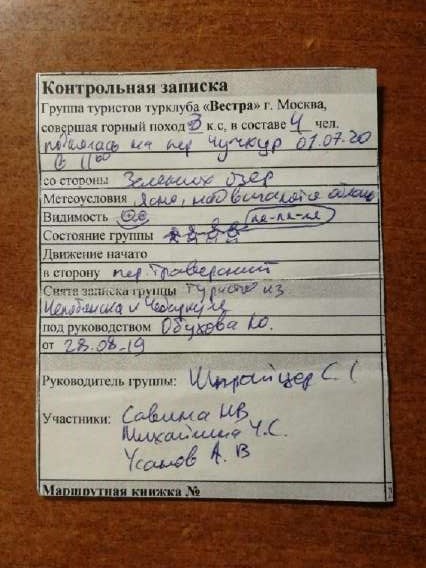 Контрольная записка
Группа туристов турклуба «Вестра» г. Москва,
совершая горный поход 3 к.с, в составе 4 чел.
поднялась на пер Чучкур 01.07.20
в 11⁰⁰
со стороны Зеленых озер
Метеоусловия Ясно, надвигаются облака
Видимость ля-ля-ля
Состояние группы
Движение начато
в сторону пер. Траверсный
Снята записка группы туристов из
Челябинска и Чебаркуля
под руководством Обухова Ю.
от 28.08.19
Руководитель группы: Шпрайцер С.
Участники: Савина НВ
Михайлина Ч.С.
Усанов А. В
Маршрутная книжка №